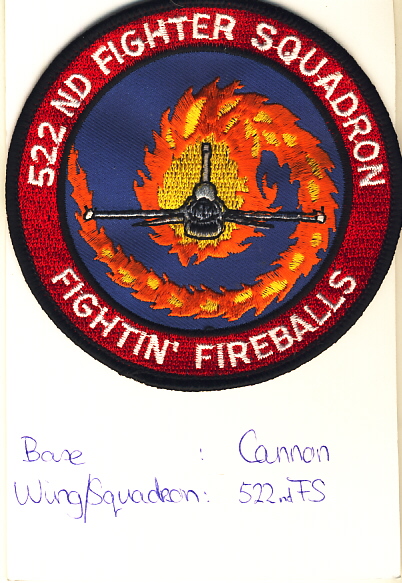 522 ND FIGHTER SQUADRON
FIGHTIN' FIREBALLS
Base : Cannon
Wing/Squadron: 522nd FS